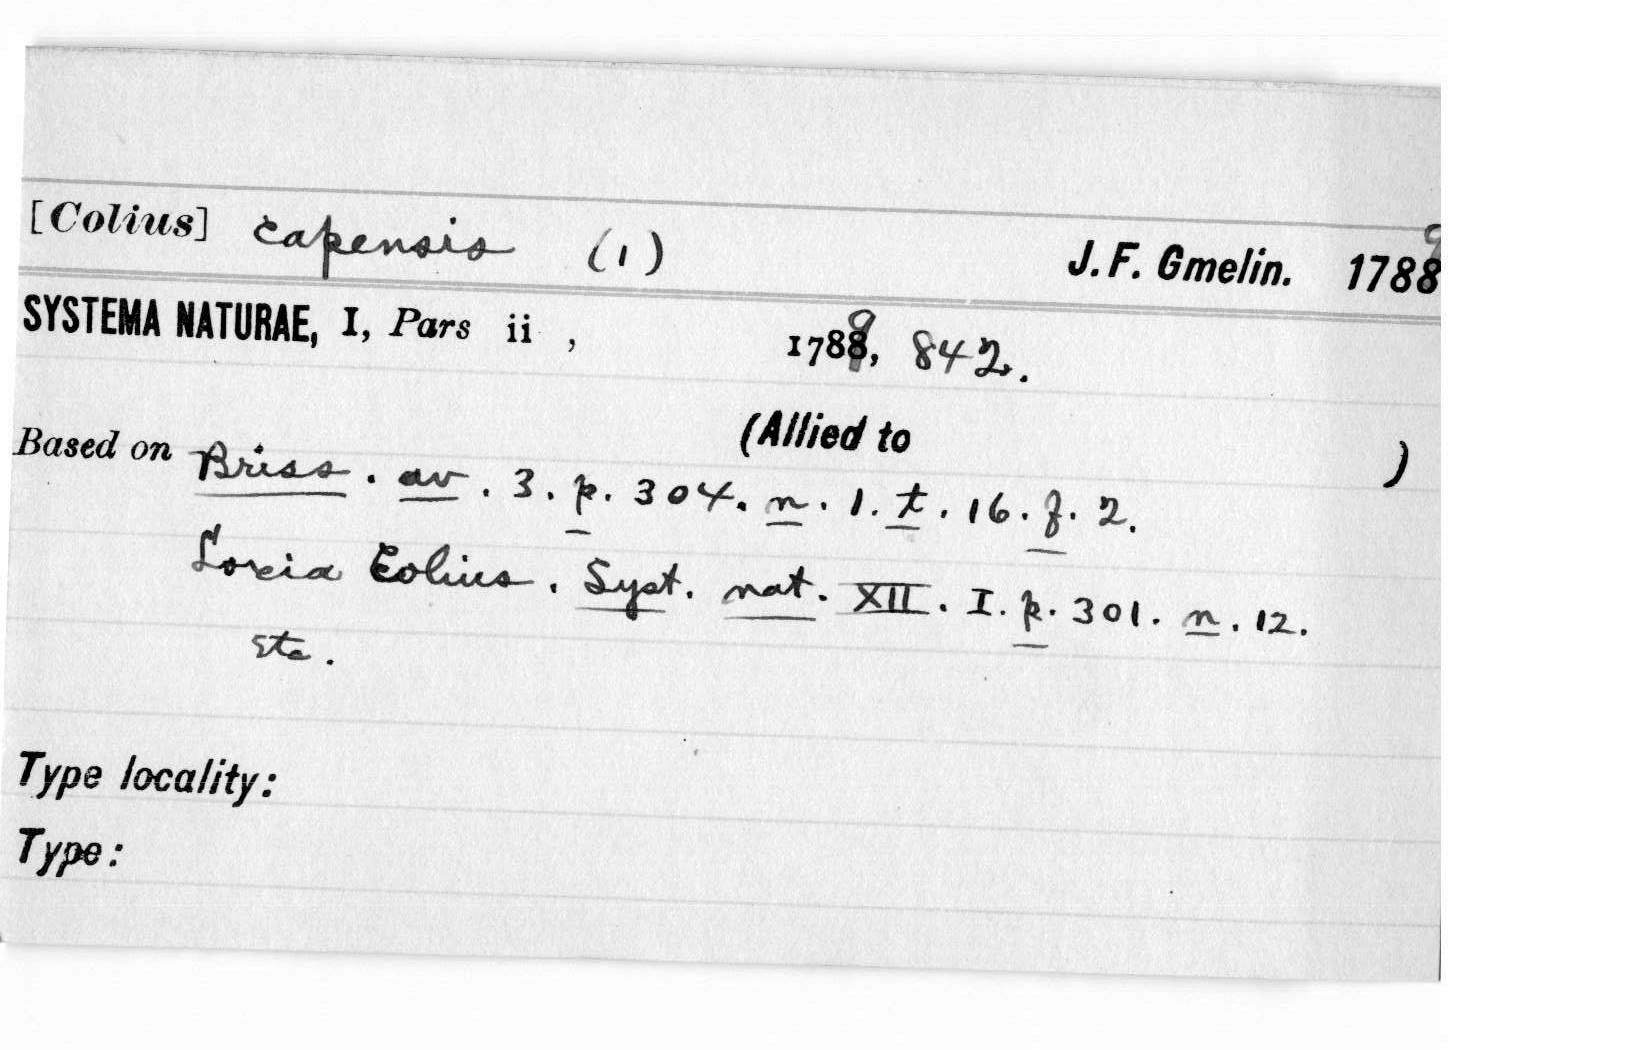 [Colius] capensis (1) J. F. Gmelin. 1789
SYSTEMA NATURAE, I, Pars ii , 1789, 842.
(Allied to )
Based on Briss. av. 3. p. 304. n. 1. t. 16. f. 2.
Loxia Colius. Syst. nat. XII. I. p. 301. n. 12.
etc.
Type locality:
Type: